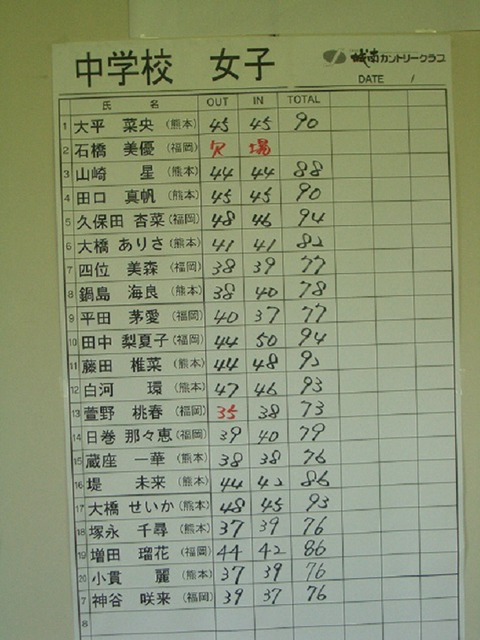 中学校 女子 城南カントリークラブ
DATE /
氏 名 OUT IN TOTAL
1 大平 菜央 (熊本) 45 45 90
2 石橋 美優 (福岡) 欠 場
3 山崎 星 (熊本) 44 44 88
4 田口 真帆 (熊本) 45 45 90
5 久保田 杏菜 (福岡) 48 46 94
6 大橋 ありさ (熊本) 41 41 82
7 四位 美森 (福岡) 38 39 77
8 鍋島 海良 (熊本) 38 40 78
9 平田 茅愛 (福岡) 40 37 77
10 田中 梨夏子 (福岡) 44 50 94
11 藤田 椎菜 (熊本) 44 48 92
12 白河 環 (熊本) 47 46 93
13 萱野 桃春 (福岡) 35 38 73
14 日巻 那々恵 (福岡) 39 40 79
15 蔵座 一華 (熊本) 38 38 76
16 堤 未来 (熊本) 44 42 86
17 大橋 せいか (熊本) 48 45 93
18 塚永 千尋 (熊本) 37 39 76
19 増田 瑠花 (福岡) 44 42 86
20 小貫 麗 (熊本) 37 39 76
7 神谷 咲来 (福岡) 39 37 76
8